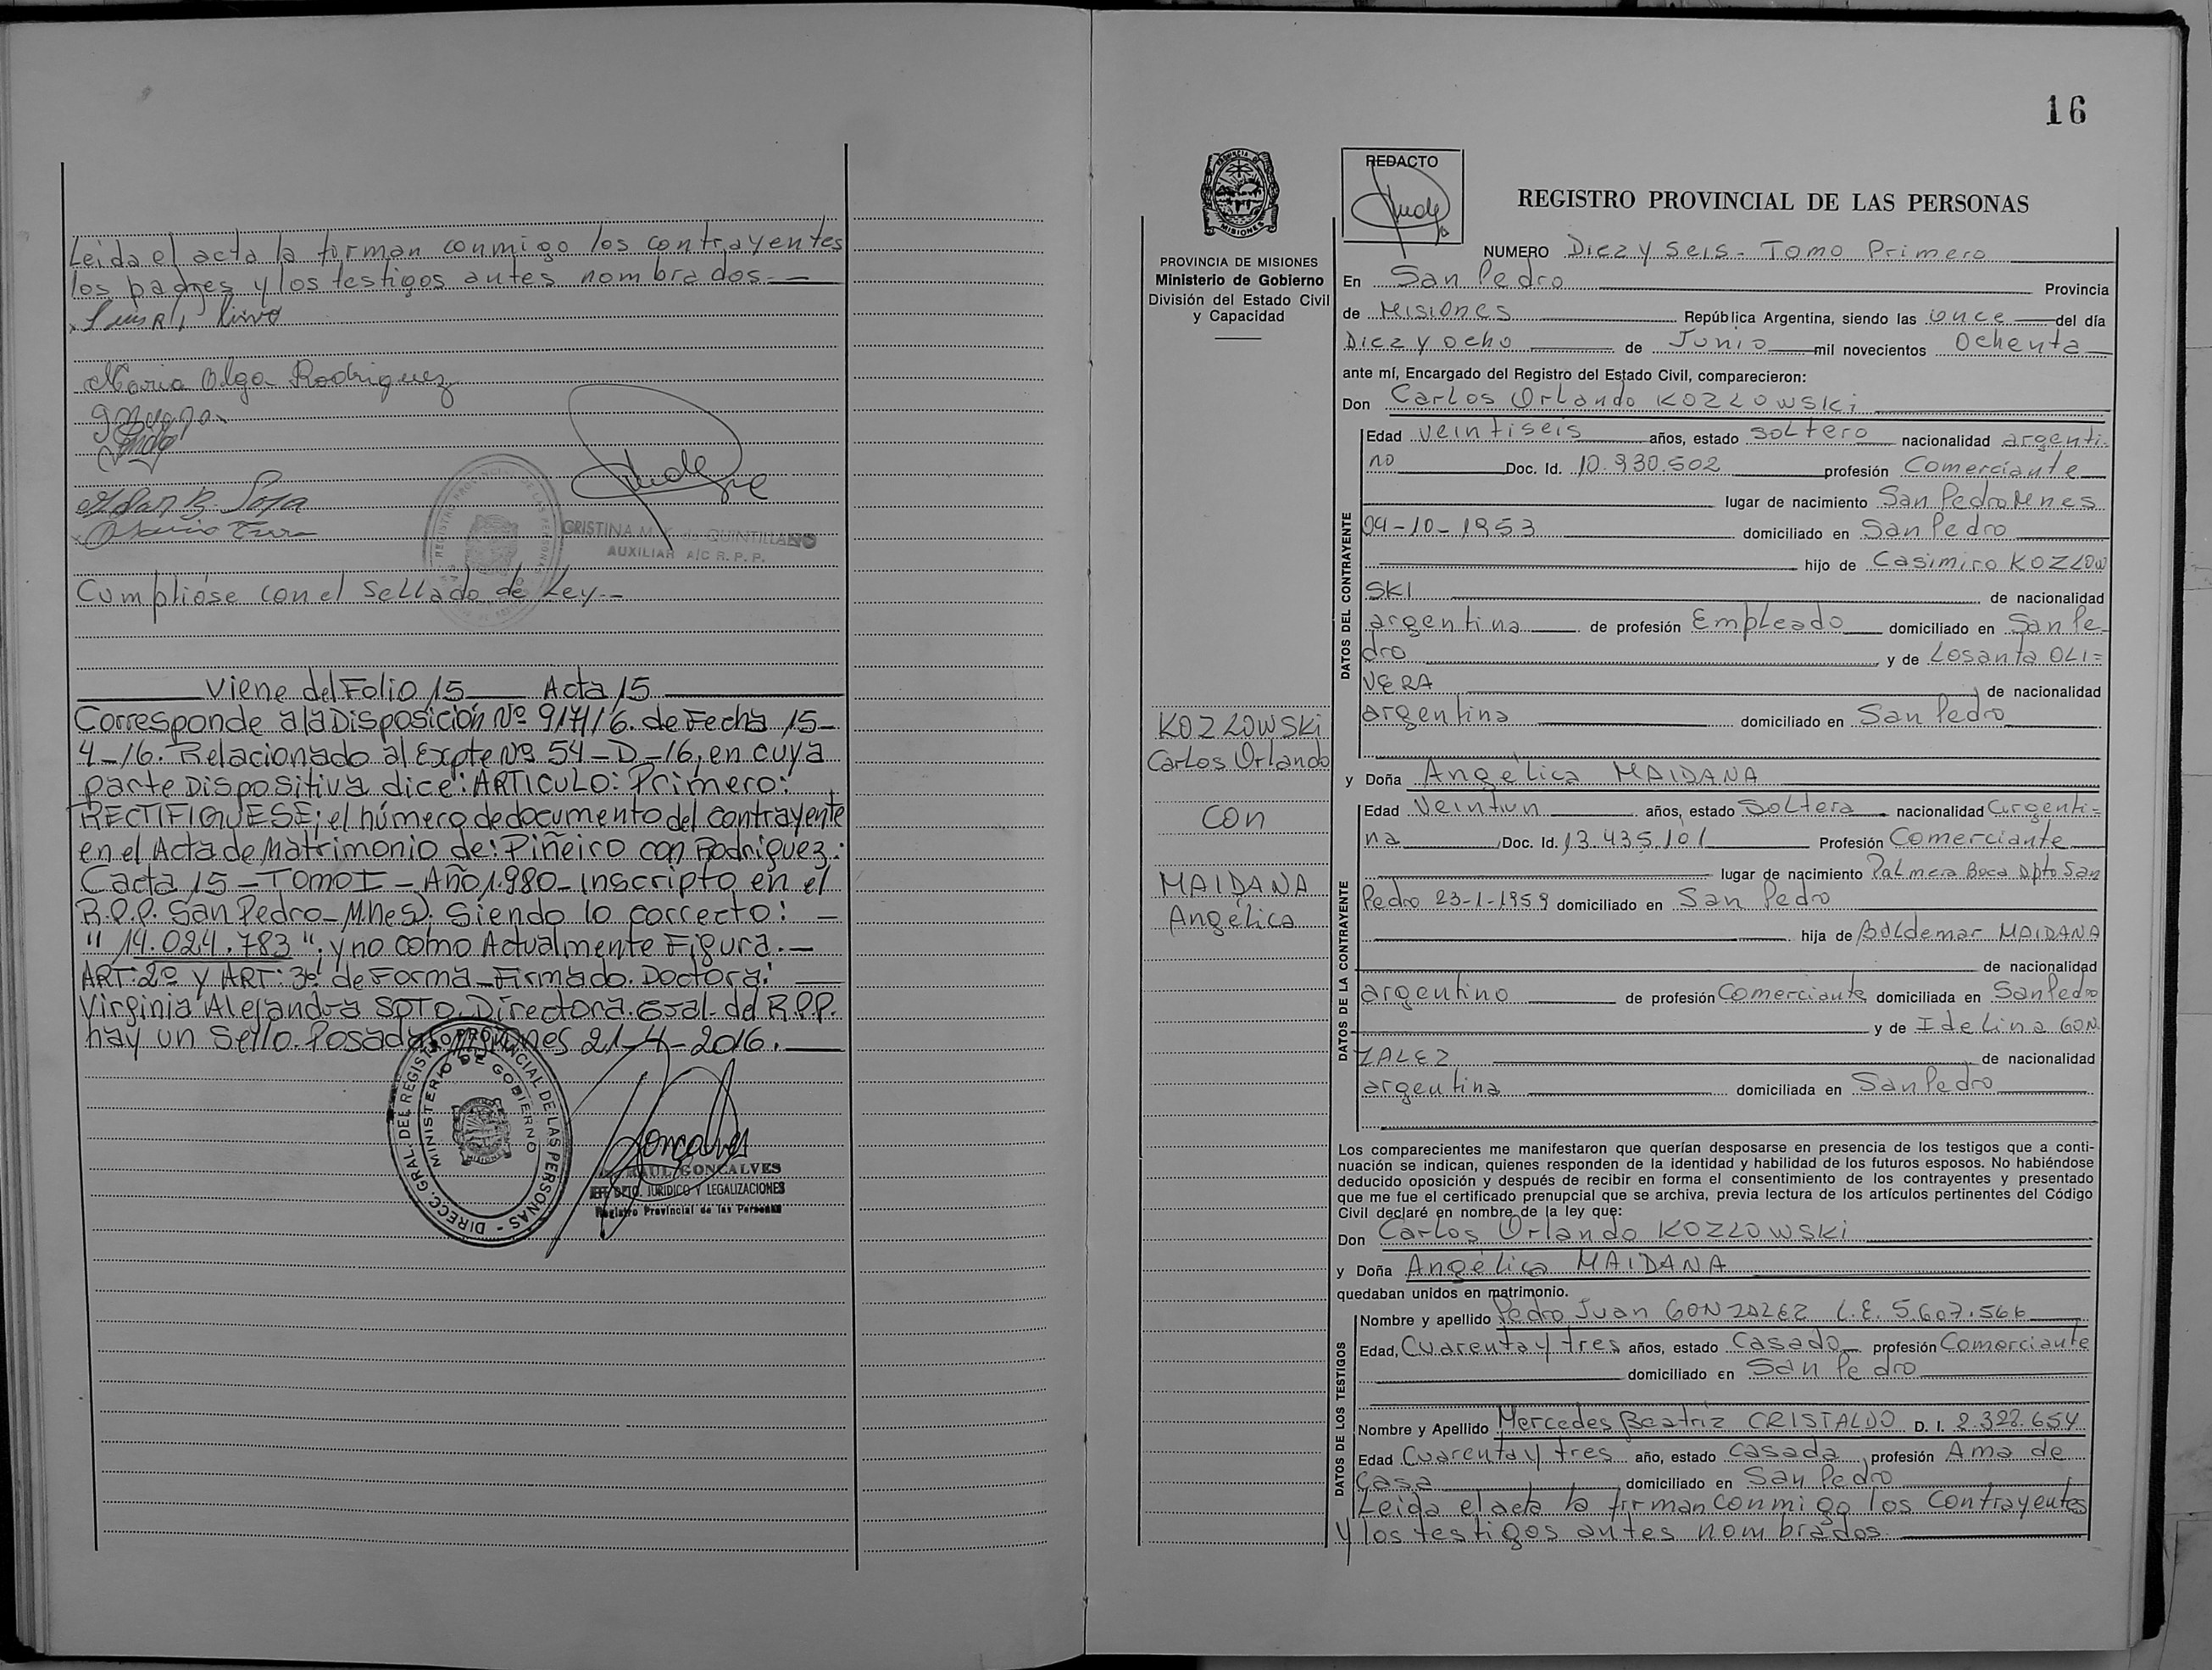 Leida el acta la firman conmigo los contrayentes
los padres y los testigos antes nombrados.
Maria Olga Rodriguez
CRISTINA M. K. de QUINTILLANO
AUXILIAR A/C R. P. P.
Cumplióse con el Sellado de Ley.-
Viene del Folio 15 Acta 15
Corresponde a la Disposición Nº 917/16. de Fecha 15-
4-16. Relacionado al Expte Nº 54-D-16, en cuya
parte Dispositiva dice: ARTICULO: Primero:
RECTIFIQUESE; el número de documento del contrayente
en el Acta de Matrimonio de: Piñeiro con Rodriguez:
Cacta 15 - TOMO I - Año 1.980 - inscripto en el
R.P.P. San Pedro - Mnes). Siendo lo correcto: -
"14.024.783"; y no como Actualmente Figura. -
ART: 2º y ART: 3º de Forma - Firmado. Doctora:
Virginia Alejandra SOTO. Directora. Gral. del R.P.P.
hay un Sello. Posadas, Misiones 21-4-2016.
DIRECC. GRAL. DEL REGISTRO PROVINCIAL DE LAS PERSONAS -
MINISTERIO DE GOBIERNO
MISIONES
RAUL GONCALVES
JEFE DPTO. JURIDICO Y LEGALIZACIONES
Registro Provincial de las Personas
16
PROVINCIA DE MISIONES
Ministerio de Gobierno
División del Estado Civil
y Capacidad
KOZLOWSKi
Carlos Orlando
con
MAIDANA
Angélica
REDACTO
REGISTRO PROVINCIAL DE LAS PERSONAS
NUMERO Diez y seis - Tomo Primero
En San Pedro Provincia
de Misiones República Argentina, siendo las once del día
Diez y ocho de Junio mil novecientos Ochenta
ante mí, Encargado del Registro del Estado Civil, comparecieron:
Don Carlos Orlando KOZLOWSKi
DATOS DEL CONTRAYENTE
Edad veintiseis años, estado soltero nacionalidad argenti-
no Doc. Id. 10.930.502 profesión Comerciante
lugar de nacimiento San Pedro Mnes
04-10-1953 domiciliado en San Pedro
hijo de Casimiro KOZLOW
SKI de nacionalidad
argentina de profesión Empleado domiciliado en San Pe-
dro y de Losanta OLI=
VERA de nacionalidad
argentina domiciliado en San Pedro
y Doña Angélica MAIDANA
DATOS DE LA CONTRAYENTE
Edad Veintiun años, estado Soltera nacionalidad argenti=
na Doc. Id. 13.435.101 Profesión Comerciante
lugar de nacimiento Palmera Boca Dpto San
Pedro 23-1-1959 domiciliado en San Pedro
hija de Baldemar MAIDANA
de nacionalidad
argentino de profesión Comerciante domiciliada en San Pedro
y de Idelina GON
ZALEZ de nacionalidad
argentina domiciliada en San Pedro
Los comparecientes me manifestaron que querían desposarse en presencia de los testigos que a conti-
nuación se indican, quienes responden de la identidad y habilidad de los futuros esposos. No habiéndose
deducido oposición y después de recibir en forma el consentimiento de los contrayentes y presentado
que me fue el certificado prenupcial que se archiva, previa lectura de los artículos pertinentes del Código
Civil declaré en nombre de la ley que:
Don Carlos Orlando KOZLOWSKi
y Doña Angélica MAIDANA
quedaban unidos en matrimonio.
DATOS DE LOS TESTIGOS
Nombre y apellido Pedro Juan GONZALEZ L.E. 5.607.566
Edad, Cuarenta y tres años, estado Casado profesión Comerciante
domiciliado en San Pedro
Nombre y Apellido Mercedes Beatriz CRISTALDO D. I. 2.322.654
Edad Cuarenta y tres año, estado casada profesión Ama de
casa domiciliado en San Pedro
Leida el acta la firman conmigo los Contrayentes
y los testigos antes nombrados